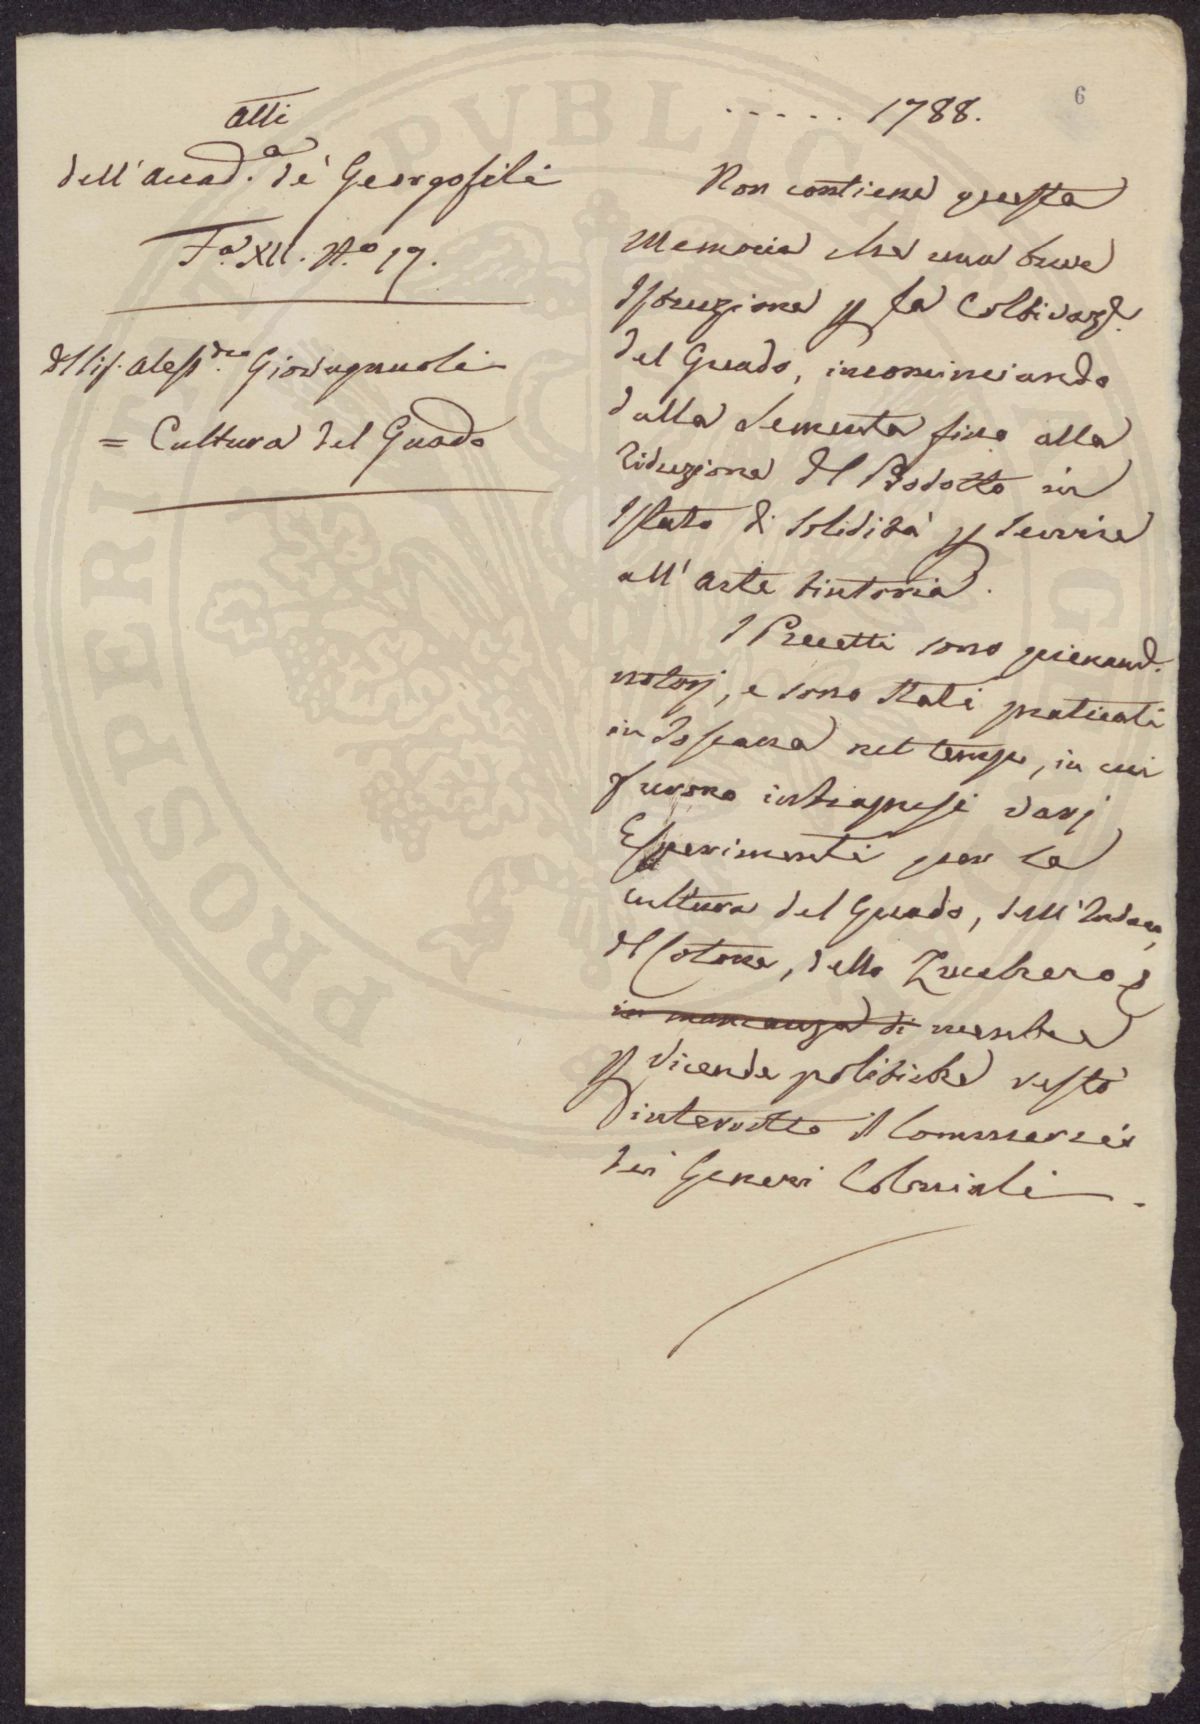 6
Atti
dell'Accad.a de' Georgofili
F.a XII. N.o 19.
Del Sig. Aless.dro Giovagnuoli
= Cultura del Guado
. . . . . . 1788.
Non contiene questa
Memoria che una breve
Istruzione p la Coltivaz.e
del Guado, incominciando
dalla Sementa fino alla
riduzione del Prodotto in
Istato di solidità p servire
all'Arte tintoria.
I Precetti sono pienam.e
notorj, e sono stati praticati
in Toscana nel tempo, in cui
furono intrapresi varj
Esperimenti per la
cultura del Guado, dell'Indaco,
del Cotone, dello Zucchero &
in mancanza di mentre
p vicende politiche restò
interrotto il Commercio
dei Generi Coloniali.
PROSPERITATI PUBLICAE